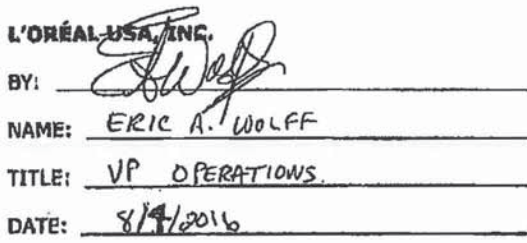 L'ORÉAL USA, INC.
BY:
NAME: ERIC A. WOLFF
TITLE: VP OPERATIONS.
DATE: 8/4/2016